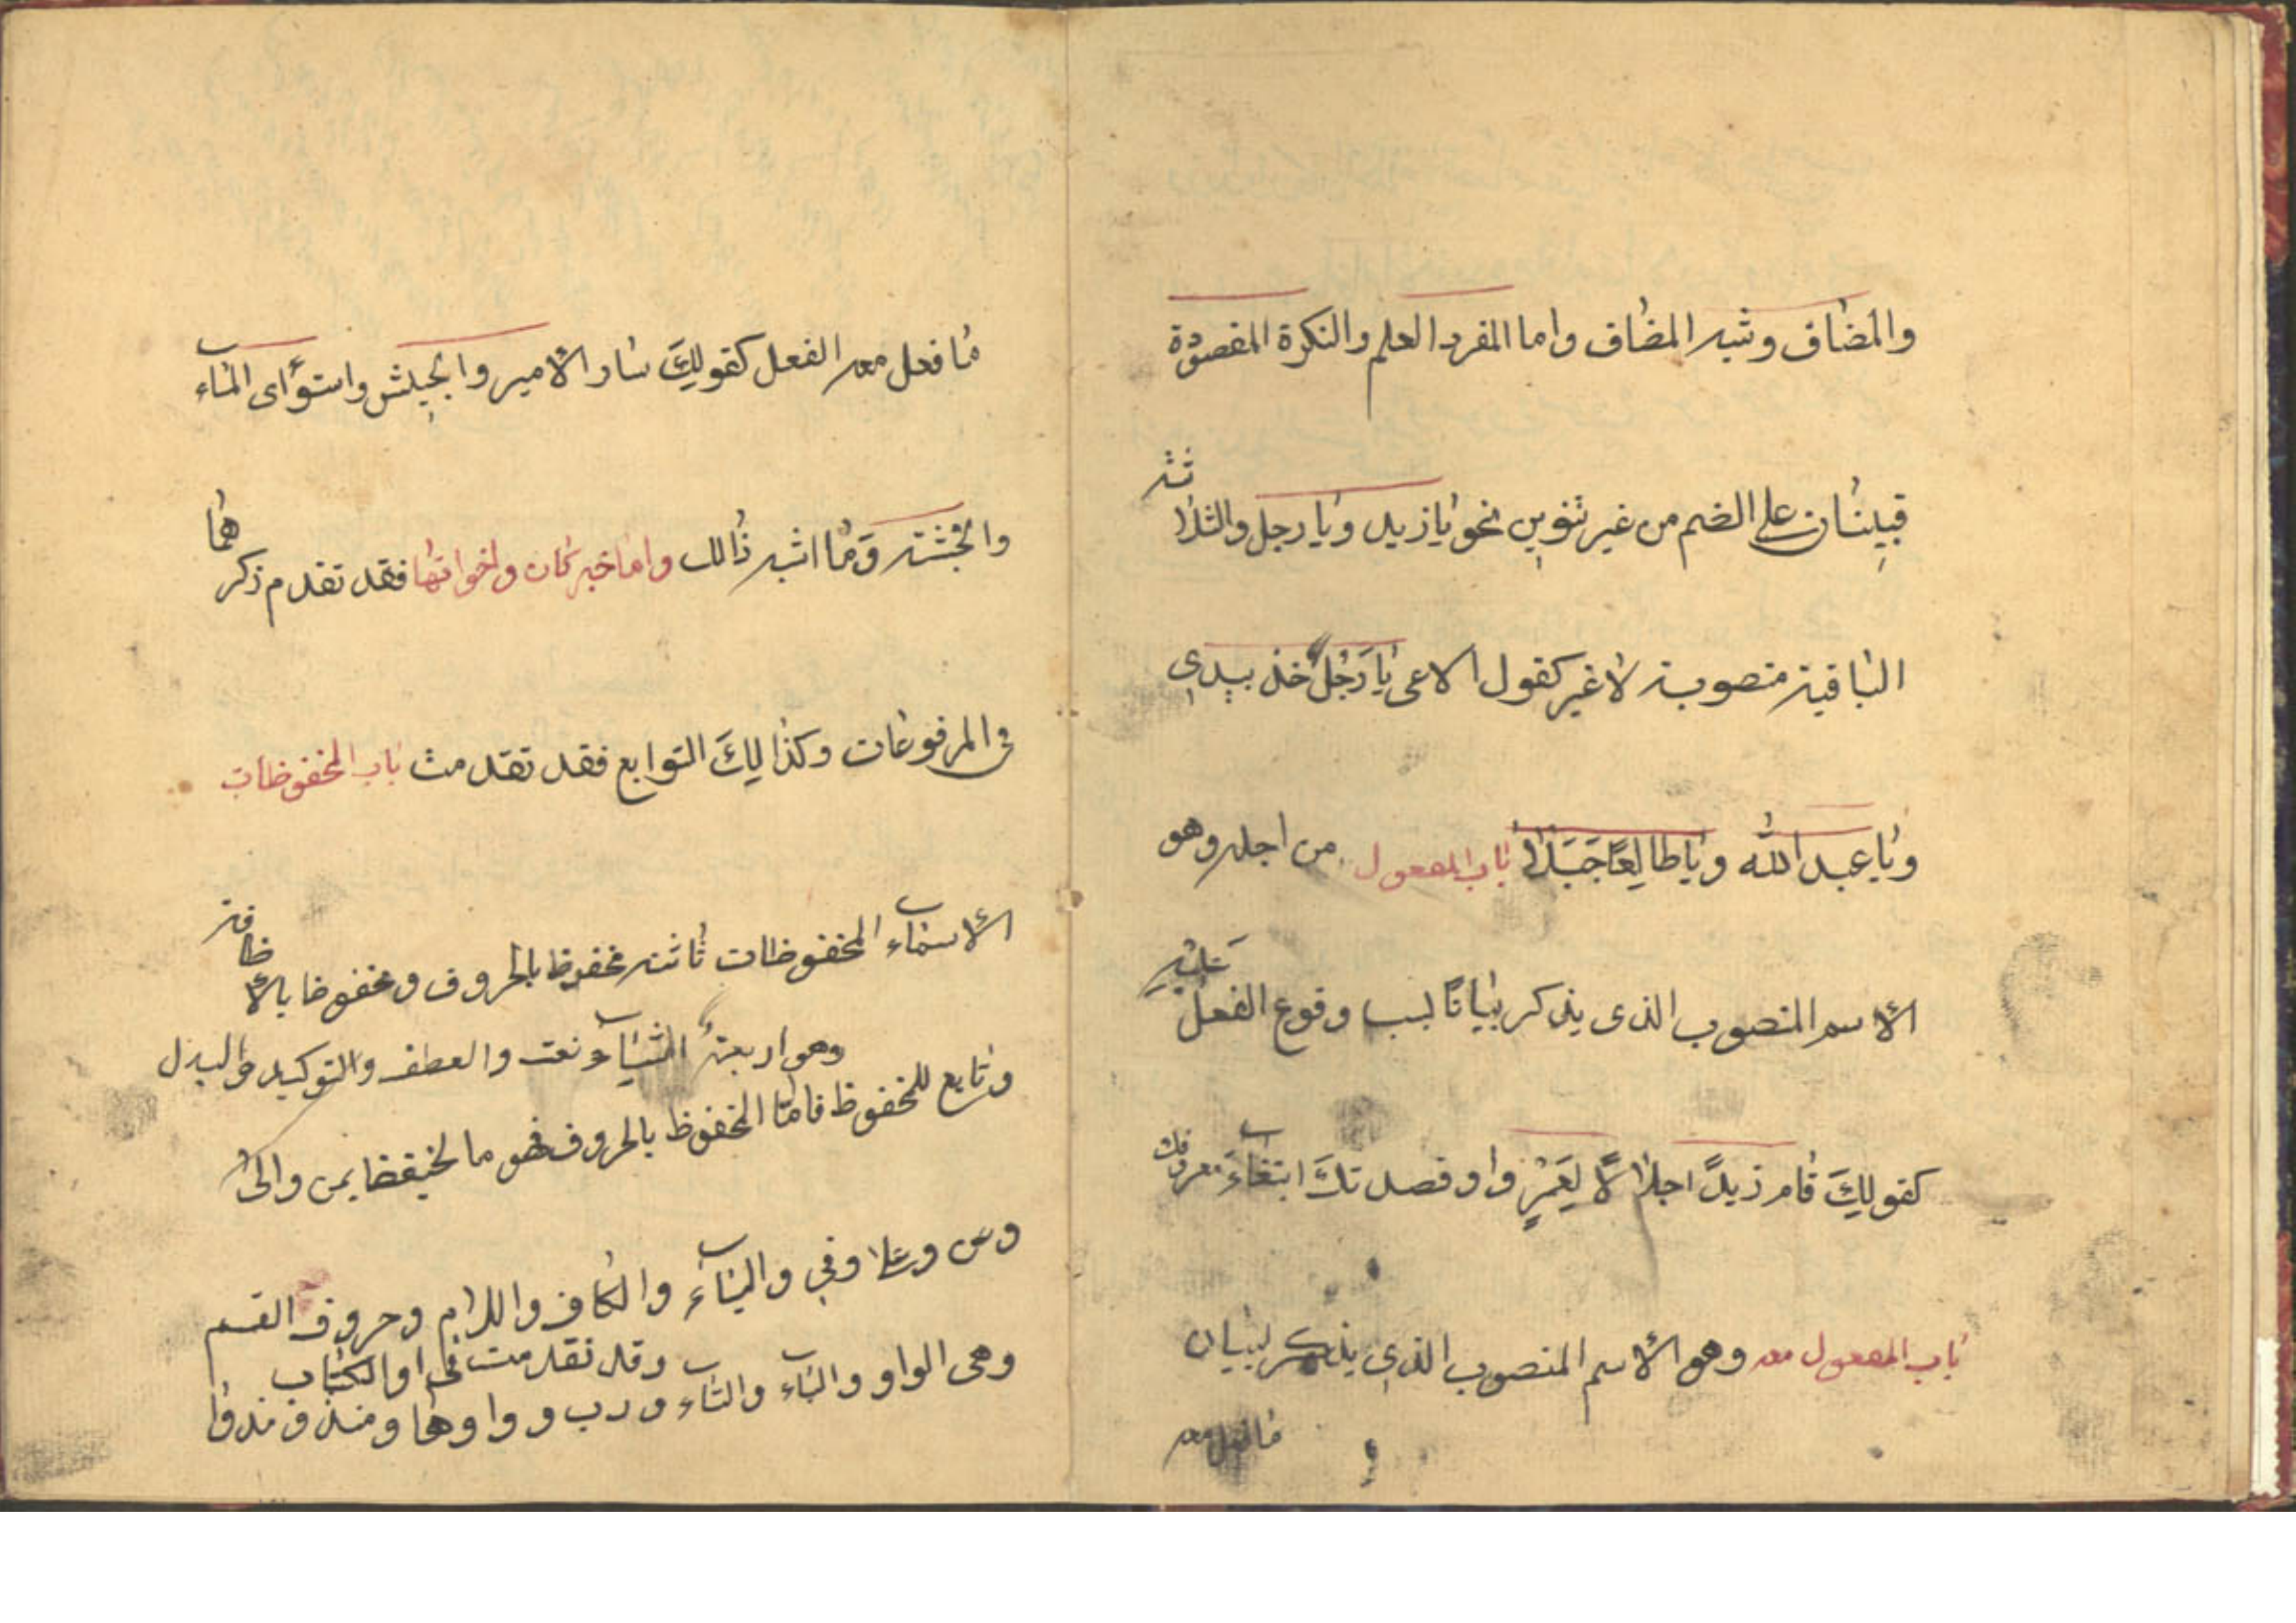 والمضاف وشبه المضاف واما المفرد العلم والنكرة المقصودة
فيبنان على الضم من غير تنوين نحو يا زيد ويا رجل والثلاثة
الباقية منصوبة لا غير كقول الاعمى يا رَجُلًا خذ بيدي
ويا عبد الله ويا طالِعًا جَبَلًا باب المفعول من اجله وهو
الاسم المنصوب الذى يذكر بيانًا لسبب وقوع الفعل عَلَيْهِ
كقولِكَ قام زيدً اجلالًا لِعَمْرٍ واو قصدتكَ ابتغاءَ معروفك
باب المفعول معه وهو الاسم المنصوب الذي يذكر لبيان
ما فعل معه
ما فعل معه الفعل كقولِكَ سار الامير والجيش واستوٱى الماء
والخشبة وَمٰا اشبه ذٰالك واما خبر كان واخواتها فقد تقدم ذكرهما
فى المرفوعات وكذالِكَ التوابع فقد تقدمت باب المخفوظات
الاسماء المخفوظات ثاثته مخفوظ بالحروف ومخفوضا بالاظافة
وتابع للمخفوظ وهو اربعة اشياء نعت والعطف والتوكيد والبدل
فامّا المخفوظ بالحروف فهو ما يخفض بمن والى
وعن وعلا وفي والباء والكاف واللام وحروف القسم
وهى الواو والباء والتاء ورب وواوها ومنذ ومذ وقد تقدمت فى اوالكتاب